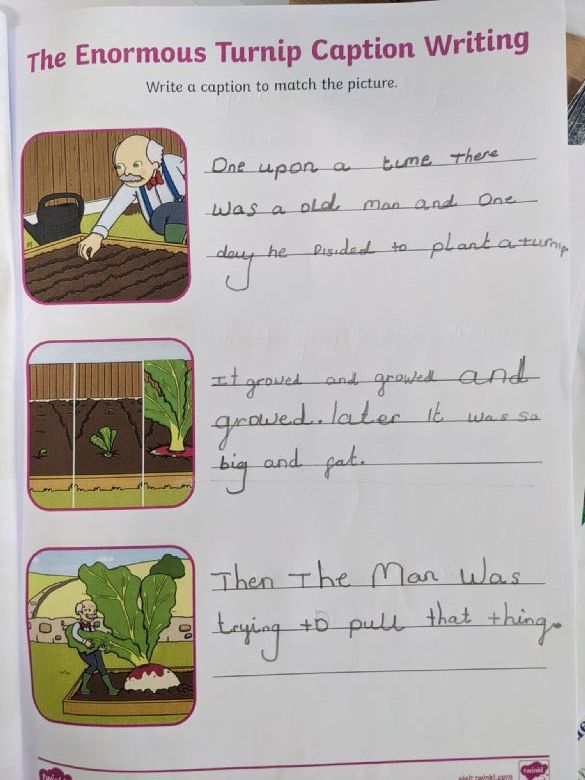 The Enormous Turnip Caption Writing
Write a caption to match the picture.
One upon a time There
Was a old man and One
day he Disided to plant a turnip
It growed and growed and
growed. later It was so
big and fat.
Then The Man Was
trying to pull that thing.
twinkl
visit twinkl.com
twinkl